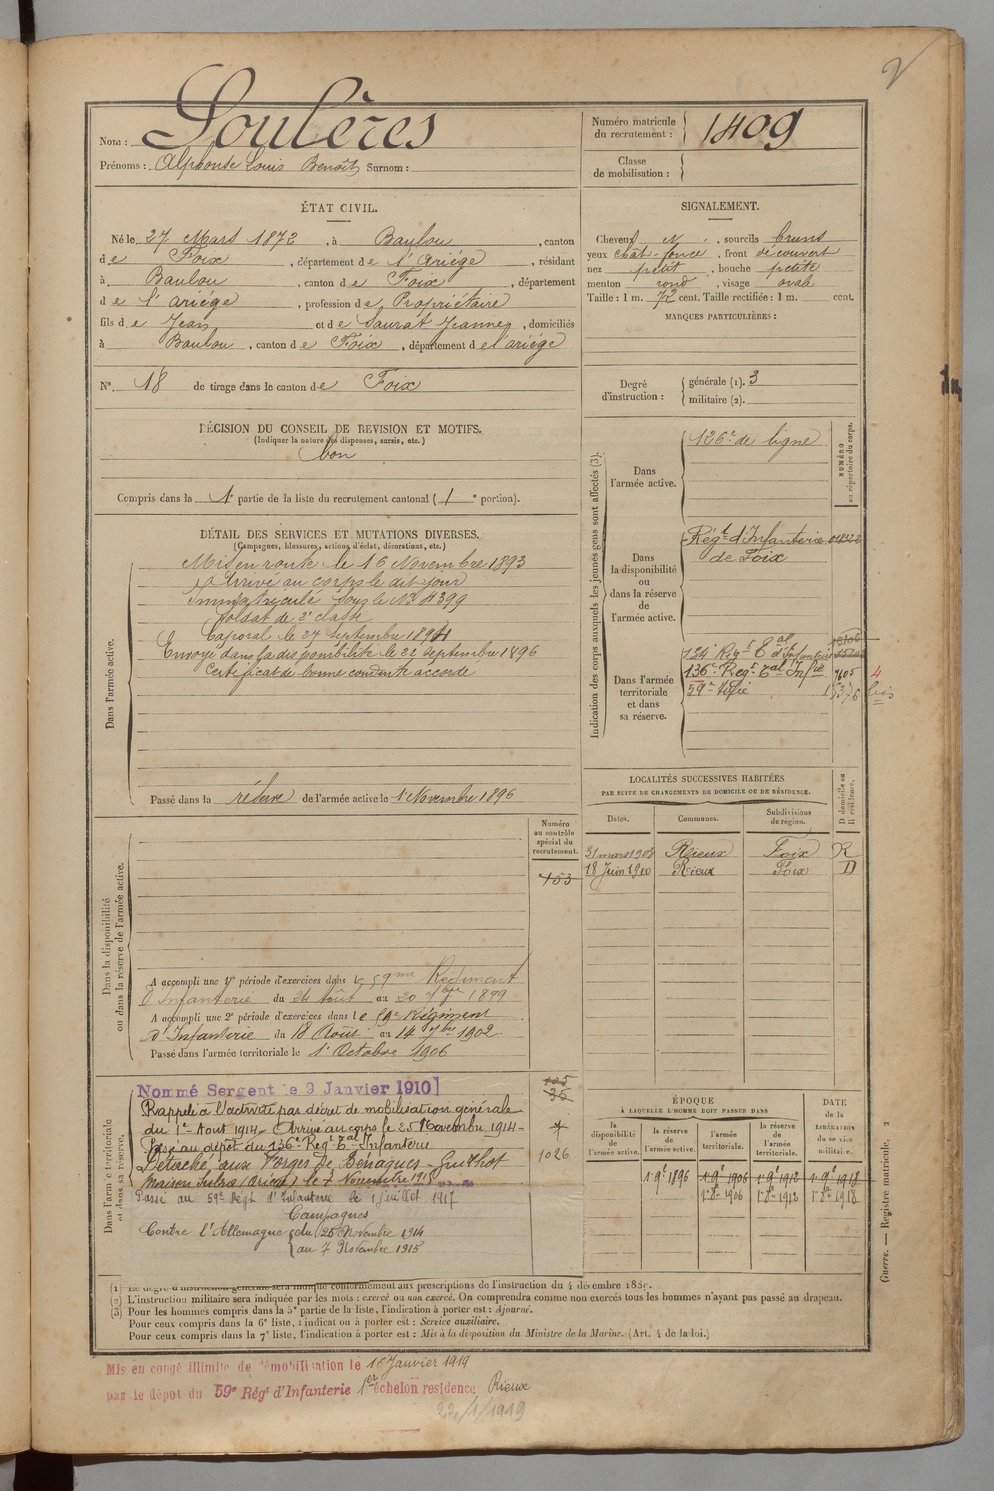 2
Nom : Loulères
Prénoms : Alphonse Louis Benoit Surnom :
Numéro matricule du recrutement : 1409
Classe de mobilisation :
ÉTAT CIVIL.
Né le 27 Mars 1872, à Baulou, canton
de Foix, département de l'Ariège, résidant
à Baulou, canton de Foix, département
de l'ariége, profession de Propriétaire
fils de Jean et de Saurat Jeanne, domiciliés
à Baulou, canton de Foix, département de l'ariége
N° 18 de tirage dans le canton de Foix
SIGNALEMENT.
Cheveux N., sourcils bruns
yeux chât-foncé, front découvert
nez petit, bouche petite
menton rond, visage ovale
Taille : 1 m. 72 cent. Taille rectifiée : 1 m. cent.
MARQUES PARTICULIÈRES :
Degré d'instruction : générale (1). 3
militaire (2).
DÉCISION DU CONSEIL DE REVISION ET MOTIFS.
(Indiquer la nature des dispenses, sursis, etc.)
bon
Compris dans la 1e partie de la liste du recrutement cantonal (1e portion).
DÉTAIL DES SERVICES ET MUTATIONS DIVERSES.
(Campagnes, blessures, actions d'éclat, décorations, etc.)
Dans l'armée active.
Mis en route le 16 Novembre 1893
Arrivé au corps le dit jour
Immatriculé sous le N° 4399
Soldat de 2e classe
Caporal le 27 septembre 1894
Envoyé dans la disponibilité le 22 septembre 1896
Certificat de bonne conduite accordé
Passé dans la réserve de l'armée active le 1 Novembre 1896
Indication des corps auxquels les jeunes gens sont affectés (3).
NUMÉRO au répertoire du corps.
Dans l'armée active.
126e de ligne
Dans la disponibilité ou dans la réserve de l'armée active.
Régt d'Infanterie
de Foix
Dans l'armée territoriale et dans sa réserve.
134e Regt Tal d'Infanterie
136e Regt Tal Infie 7605
59e Infie
4
bis
LOCALITÉS SUCCESSIVES HABITÉES
PAR SUITE DE CHANGEMENTS DE DOMICILE OU DE RÉSIDENCE.
Dates. Communes. Subdivisions de région. D domicile ou R résidence.
31 mars 1908 Rieux Foix R
18 Juin 1910 Rieux Foix D
Numéro au contrôle spécial du recrutement.
153
Dans la disponibilité ou dans la réserve de l'armée active.
A accompli une 1re période d'exercices dans le 59me Régiment
d'Infanterie du 24 Août au 20 7bre 1899
A accompli une 2e période d'exercices dans le 59e Régiment
d'Infanterie du 18 Août au 14 7bre 1902
Passé dans l'armée territoriale le 1er Octobre 1906
Dans l'armée territoriale et dans sa réserve.
Nommé Sergent le 9 Janvier 1910
Rappelé à l'activité par décret de mobilisation générale
du 1er Août 1914. Arrivé au corps le 25 Novembre 1914.
Passé au dépôt du 136e Regt Tal Infanterie
Détaché aux Forges de Bénagues - Guilhot
le 7 Novembre 1915
Passé au 59e Régt d'Infanterie le 1 juillet 1917
Campagnes
Contre l'Allemagne du 25 Novembre 1914
au 7 Novembre 1915
105
35
1026
ÉPOQUE
À LAQUELLE L'HOMME DOIT PASSER DANS
la disponibilité de l'armée active. la réserve de l'armée active. l'armée territoriale. la réserve de l'armée territoriale.
DATE DE LA LIBÉRATION du service militaire.
1 9e 1896 1 9e 1906 1 9e 1912 1 9e 1918
1er 8e 1906 1er 8e 1912 1er 8e 1918
Guerre. — Registre matricule. 2
(1) Le degré d'instruction générale sera indiqué conformément aux prescriptions de l'instruction du 4 décembre 1889.
(2) L'instruction militaire sera indiquée par les mots : exercé ou non exercé. On comprendra comme non exercés tous les hommes n'ayant pas passé au drapeau.
(3) Pour les hommes compris dans la 5e partie de la liste, l'indication à porter est : Ajourné.
Pour ceux compris dans la 6e liste, l'indication à porter est : Service auxiliaire.
Pour ceux compris dans la 7e liste, l'indication à porter est : Mis à la disposition du Ministre de la Marine. (Art. 4 de la loi.)
Mis en congé illimité de démobilisation le 16 Janvier 1919
par le dépôt du 59e Régt d'Infanterie 1er échelon résidence Rieux
22/1/1919